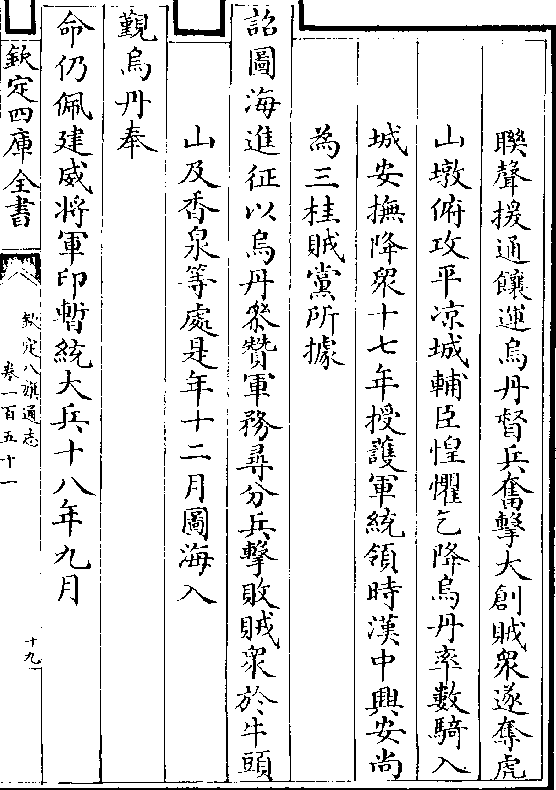 聨聲援通饟運烏丹督兵奮擊大創賊衆遂奪虎
山墩俯攻平凉城輔臣惶懼乞降烏丹率數騎入
城安撫降衆十七年授護軍統領時漢中興安尚
為三桂賊黨所據
詔圖海進征以烏丹叅贊軍務尋分兵擊敗賊衆於牛頭
山及香泉等處是年十二月圖海入
覲烏丹奉
命仍佩建威將軍印暫統大兵十八年九月
欽定四庫全書
欽定八旗通志
卷一百五十一
十九